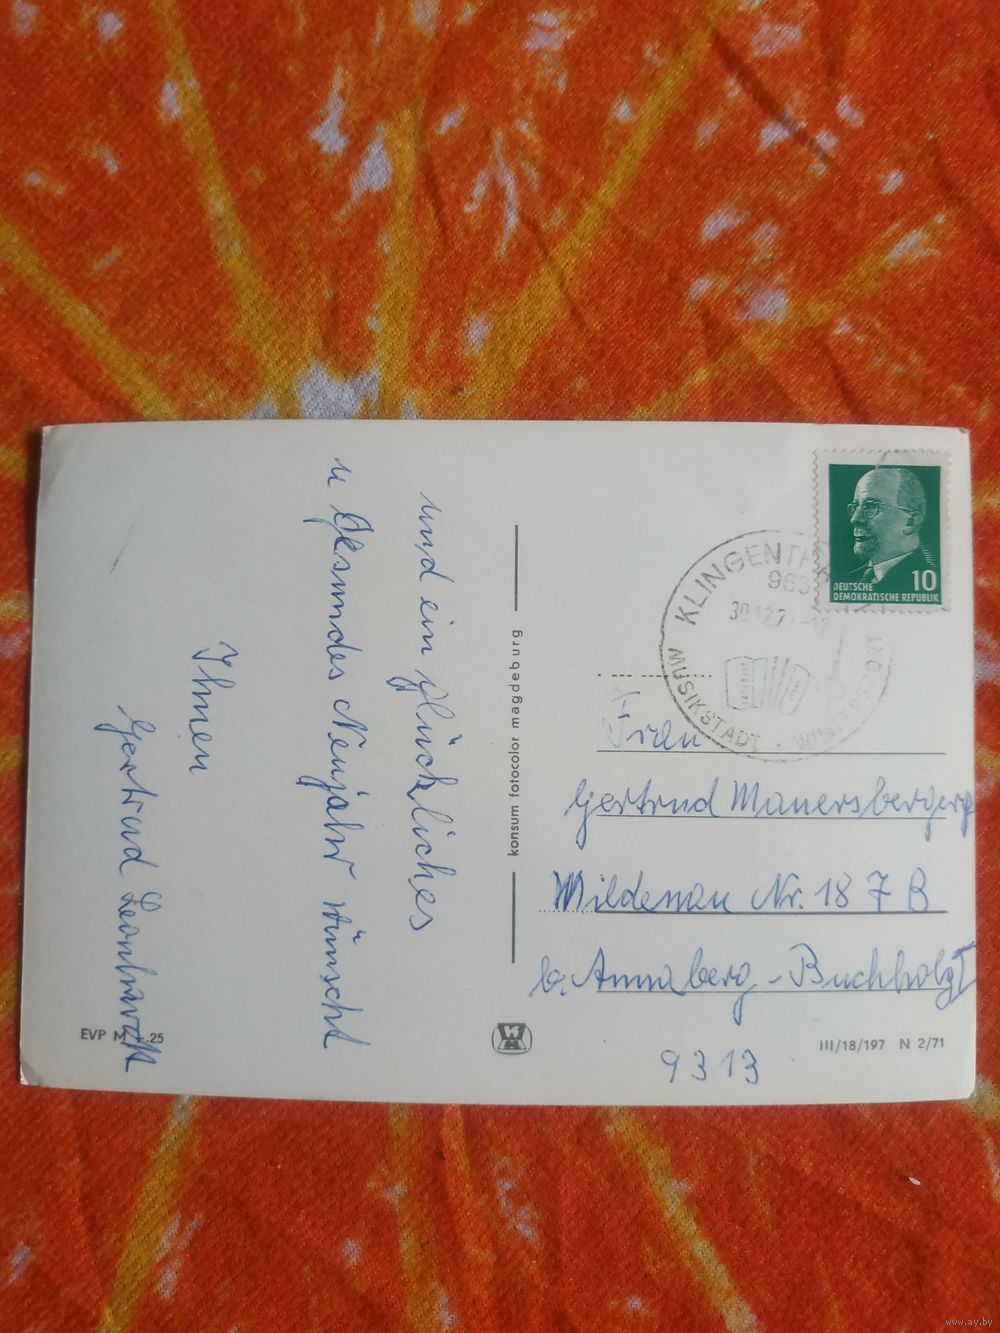 und ein glückliches
u Gesundes Neujahr wünscht
Ihnen
Gertrud Leonhardt
EVP M -.25
konsum fotocolor magdeburg
DEUTSCHE
DEMOKRATISCHE REPUBLIK
10
KLINGENTHAL
965
30.12.71-12
MUSIKSTADT · WINTERSPORT
Frau
Gertrud Mauersberger
Mildenau Nr. 187 B
b. Annaberg-Buchholz I
9313
III/18/197 N 2/71
www.ay.by